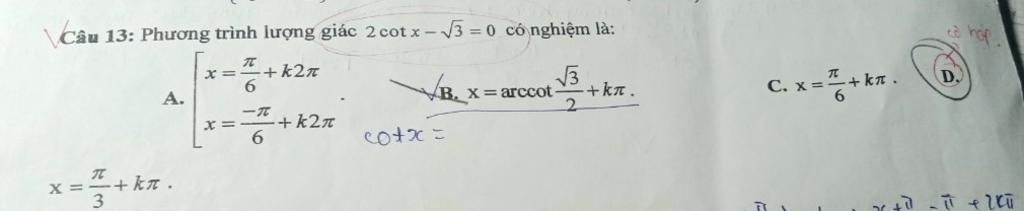 Câu 13: Phương trình lượng giác 2 cot x − √3 = 0 có nghiệm là:
A. [ x = π/6 + k2π
x = −π/6 + k2π .
B. x = arccot √3/2 + kπ .
C. x = π/6 + kπ .
D.
x = π/3 + kπ .
cotx =